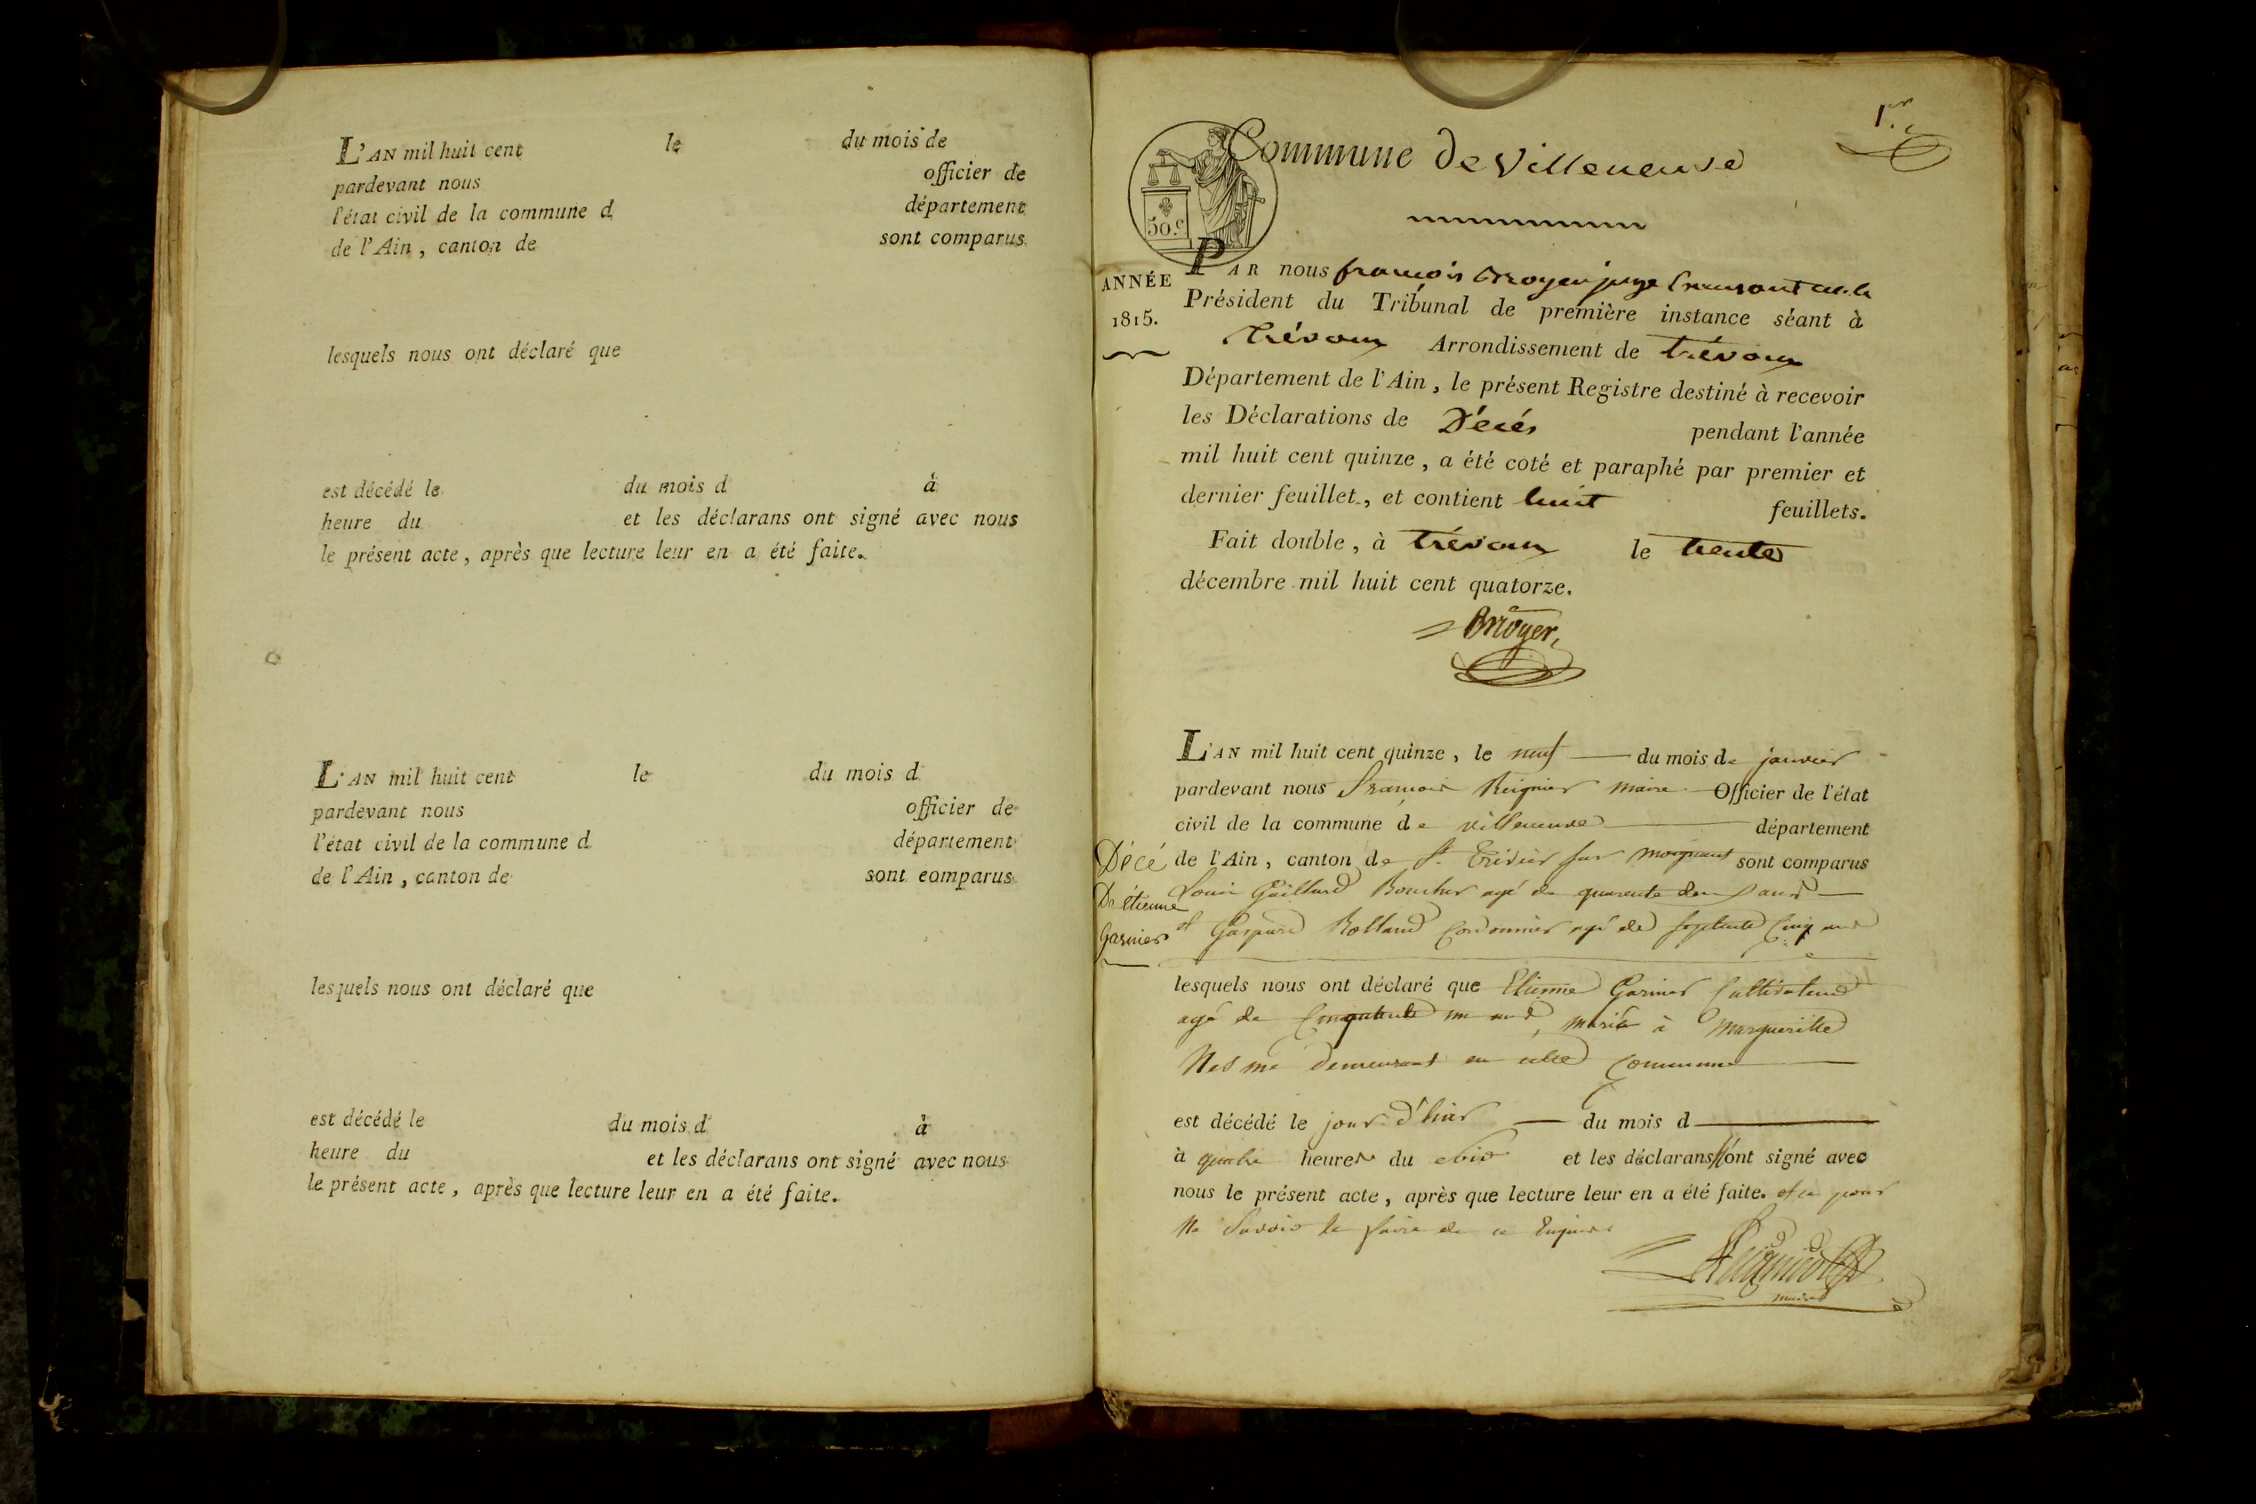 L'AN mil huit cent le du mois de
pardevant nous officier de
l'état civil de la commune d département
de l'Ain, canton de sont comparus
lesquels nous ont déclaré que
est décédé le du mois d à
heure du et les déclarans ont signé avec nous
le présent acte, après que lecture leur en a été faite.
L'AN mil huit cent le du mois d
pardevant nous officier de
l'état civil de la commune d département
de l'Ain, canton de sont comparus
lesquels nous ont déclaré que
est décédé le du mois d à
heure du et les déclarans ont signé avec nous
le présent acte, après que lecture leur en a été faite.
1er
Commune de Villeneuve
50.c
ANNÉE
1815.
PAR nous françois juge
Président du Tribunal de première instance séant à
trévoux Arrondissement de trévoux
Département de l'Ain, le présent Registre destiné à recevoir
les Déclarations de Décés pendant l'année
mil huit cent quinze, a été coté et paraphé par premier et
dernier feuillet, et contient huit feuillets.
Fait double, à trévoux le trente
décembre mil huit cent quatorze.
Décé
De étienne
Garnier
L'AN mil huit cent quinze, le neuf du mois de janvier
pardevant nous François Reignier maire Officier de l'état
civil de la commune de villeneuve département
de l'Ain, canton de St. Trivier sur moignans sont comparus
Louis Gaillard Boucher agé de quarente deux ans
et Gaspard Rolland Cordonnier agé de septente Cinq ans
lesquels nous ont déclaré que Etienne Garnier Cultivateur
agé de Cinquante un ans, marié à Margueritte
demeurant en cette Commune
est décédé le jour d'hier du mois d
à quatre heures du soir et les déclarans n'ont signé avec
nous le présent acte, après que lecture leur en a été faite. et ce pour
ne savoir le faire de ce Enquis
Reignier
maire